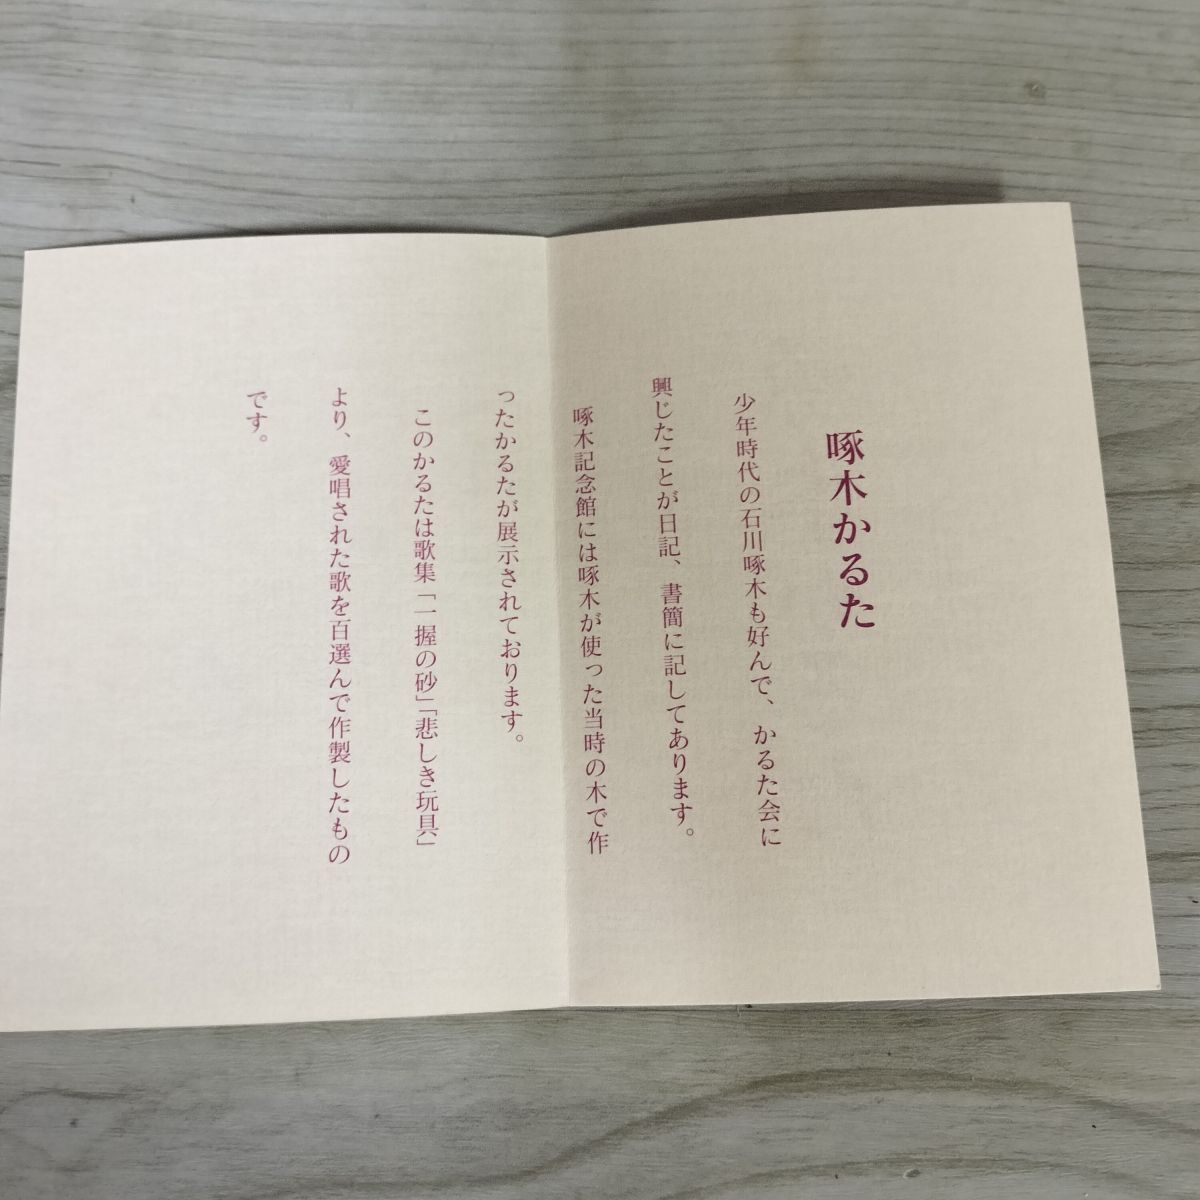 啄木かるた
少年時代の石川啄木も好んで、かるた会に
興じたことが日記、書簡に記してあります。
啄木記念館には啄木が使った当時の木で作
ったかるたが展示されております。
このかるたは歌集「一握の砂」「悲しき玩具」
より、愛唱された歌を百選んで作製したもの
です。